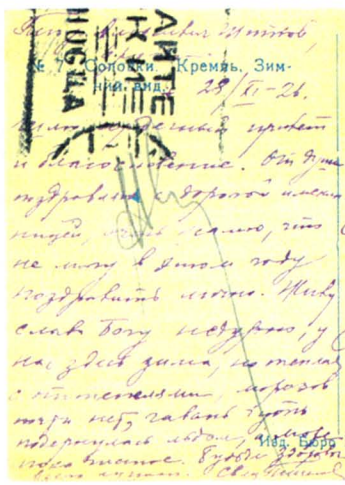 № 7. Соловки. Кремль. Зим-
ний вид.
28/XI-26.
привет
и благословение. От души
поздравляю с дорогой имен
ницей, очень жалею, что
не могу в этом году
поздравить лично. Живу
слава Богу недурно, у
нас здесь зима, но теплая
с оттепелями, морозов
почти нет, гавань чуть
подернулась льдом, а море
пока чистое. Будьте здоровы
Изд. Бюро